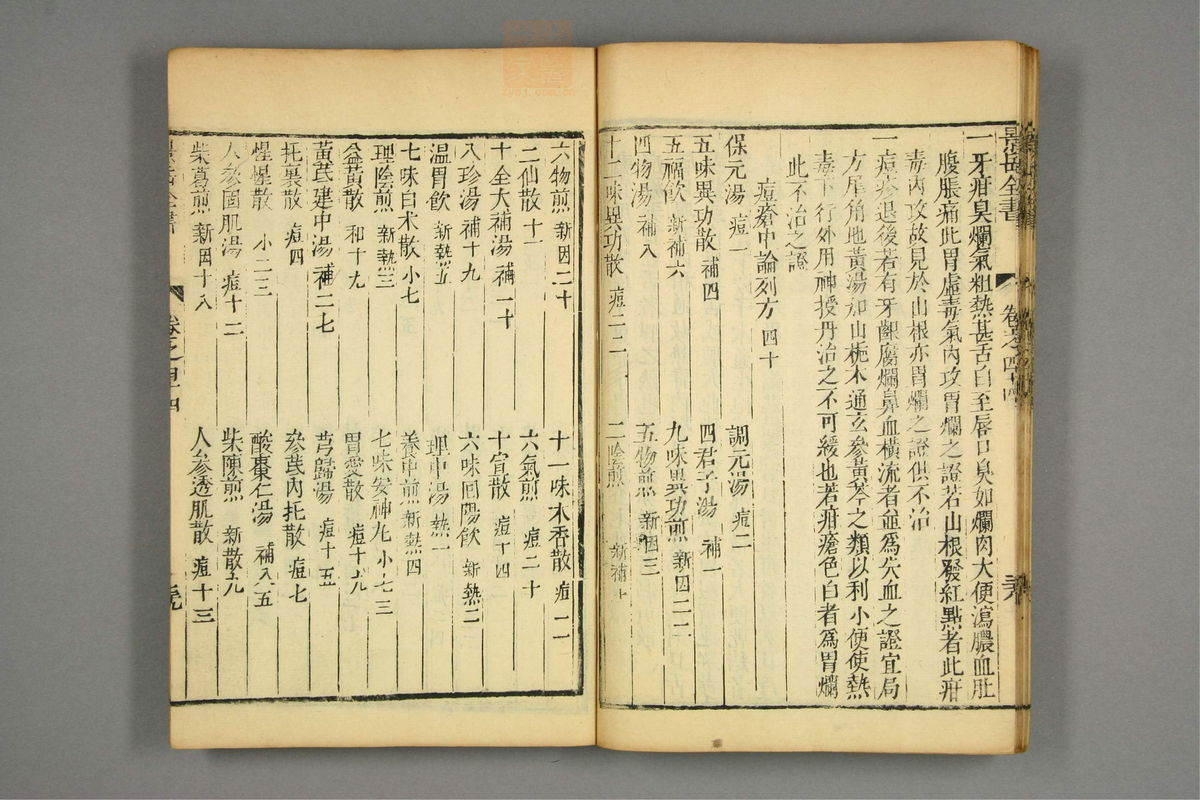 景岳全書 卷之四十四
一牙疳臭爛氣粗熱甚舌白至唇口臭如爛肉大便瀉膿血肚
腹脹痛此胃虛毒氣內攻胃爛之證若山根發紅點者此疳
毒內攻故見於山根亦胃爛之證俱不治
一痘疹退後若有牙齦腐爛鼻血橫流者並為失血之證宜局
方犀角地黃湯加山梔木通玄參黃芩之類以利小便使熱
毒下行外用神授丹治之不可緩也若疳瘡色白者為胃爛
此不治之證
痘瘡中論列方 四十
保元湯 痘一 調元湯 痘二
五味異功散 補四 四君子湯 補一
五福飲 新補六 九味異功煎 新因二二
四物湯 補八 五物煎 新因三
十二味異功散 痘二二 二陰煎 新補十
六物煎 新因二十 十一味木香散 痘二一
二仙散 十一 六氣煎 痘二十
十全大補湯 補二十 十宣散 痘十四
八珍湯 補十九 六味回陽飲 新熱二
溫胃飲 新熱五 理中湯 熱一
七味白朮散 小七 養中煎 新熱四
理陰煎 新熱三 七味安神丸 小七三
益黃散 和十九 胃愛散 痘十九
黃芪建中湯 補二七 芎歸湯 痘十五
托裏散 痘四 參芪內托散 痘七
惺惺散 小二三 酸棗仁湯 補八五
人參固肌湯 痘十二 柴陳煎 新散九
柴葛煎 新因十八 人參透肌散 痘十三
景岳全書 卷之四十四